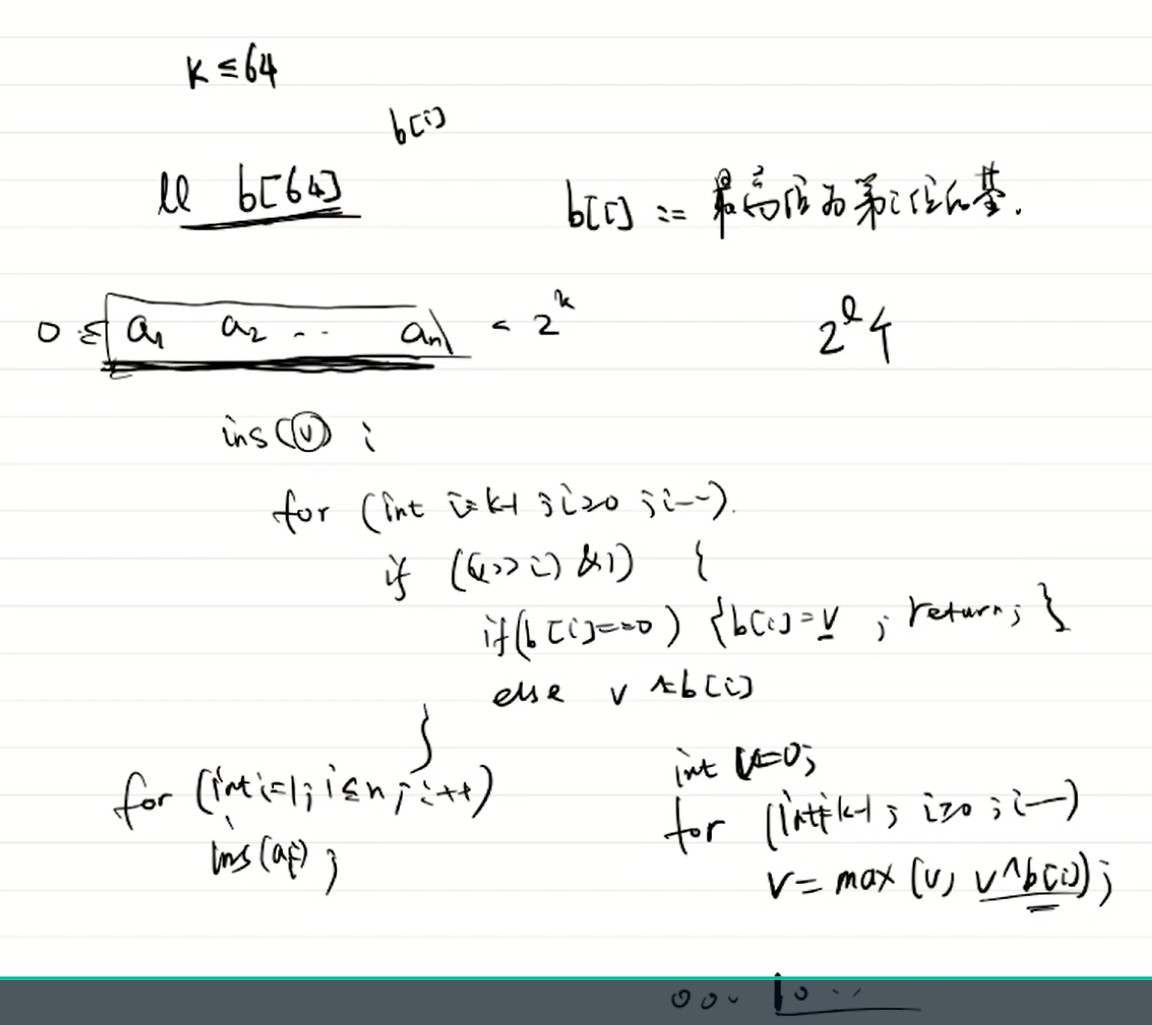 k ≤ 64
b[i]
ll b[64]
b[i] := 最高位为第i位的基.
0 ≤ a₁ a₂ ... aₙ < 2ᵏ
2ˡ个
ins(v) :
for (int i=k-1 ; i≥0 ; i--).
if ((v>>i) &1) {
if(b[i]==0) {b[i]=v ; return; }
else v ^= b[i]
}
for (int i=1; i≤n; i++)
ins(aᵢ) ;
int v=0;
for (int i=k-1 ; i≥0 ; i--)
v = max (v, v^b[i]);
0 0 . 1 0 ..